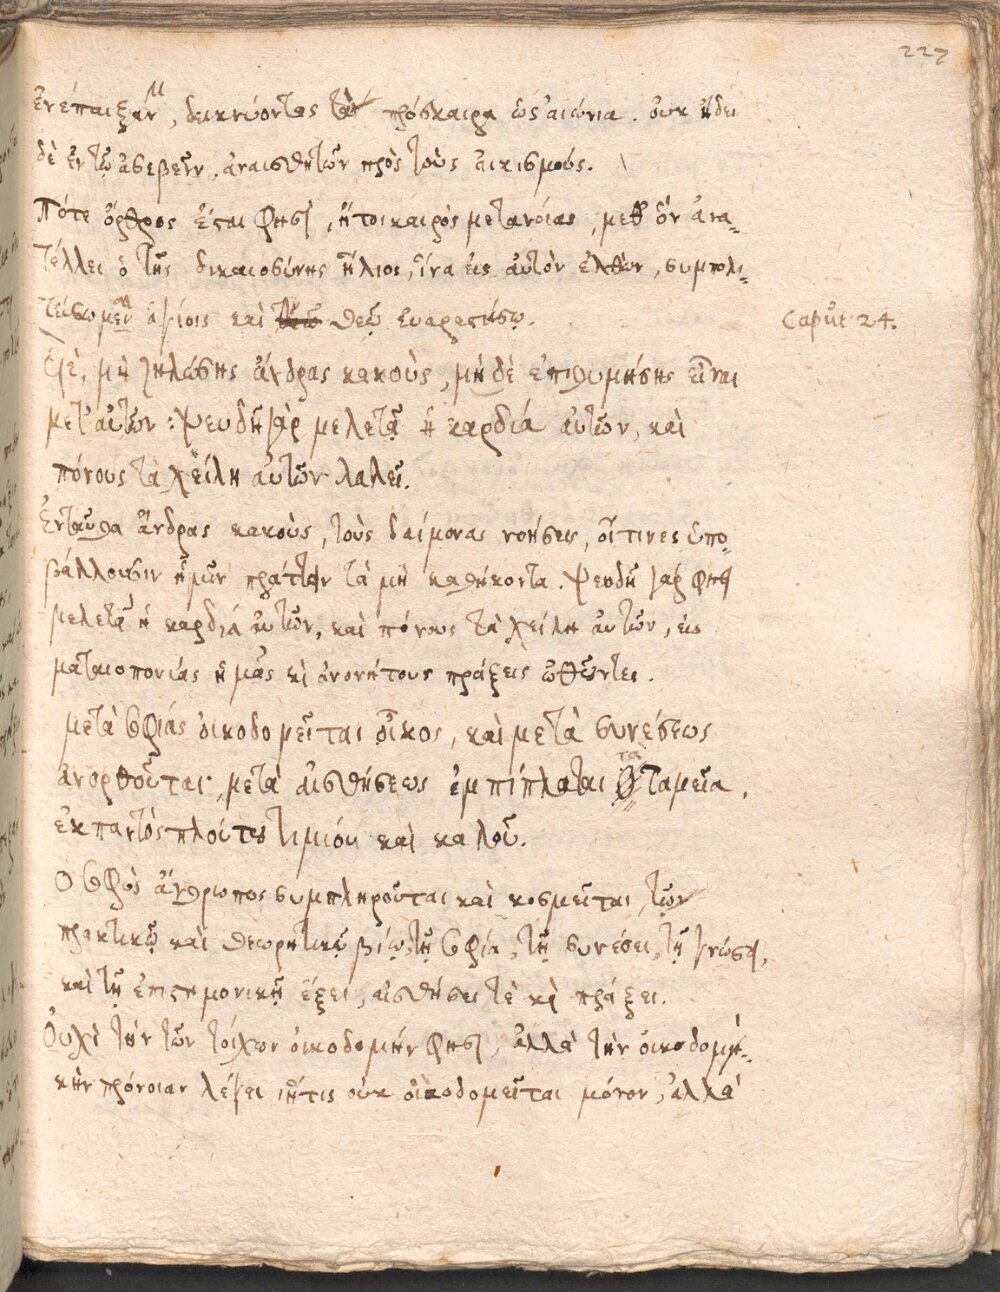 227
ἐνέπαιξάν, δεικνύοντας τὰ πρόσκαιρα ὡς αἰώνια. οὐκ ᾔδει
δὲ ἐν τῷ ἀσεβεῖν, ἀναισθητῶν πρὸς τοὺς αἰκισμούς.
Πότε ὄρθρος ἔσται φησὶ, ἤτοι καιρὸς μετανοίας, μεθ' ὃν ἀνα-
τέλλει ὁ τῆς δικαιοσύνης ἥλιος, ἵνα εἰς αὐτὸν ἐλθὼν, συμπολι-
τεύσωμεν ἁγίοις καὶ θεῷ εὐαρεστήσω.
Caput 24.
Υἱὲ, μὴ ζηλώσῃς ἄνδρας κακοὺς, μὴ δὲ ἐπιθυμήσῃς εἶναι
μετ' αὐτῶν: ψευδῆ γὰρ μελετᾷ ἡ καρδιά αὐτῶν, καὶ
πόνους τὰ χείλη αὐτῶν λαλεῖ.
Ἐνταῦθα ἄνδρας κακοὺς, τοὺς δαίμονας νοήσεις, οἵτινες ὑπο-
βάλλουσιν ἡμῖν πράττειν τὰ μὴ καθήκοντα. ψευδῆ γάρ φησι
μελετᾷ ἡ καρδιά αὐτῶν, καὶ πόνους τὰ χείλη αὐτῶν, εἰς
ματαιοπονίας ἡμᾶς κὶ ἀνονήτους πράξεις ὠθῶντες.
μετὰ σοφίας οἰκοδομεῖται οἶκος, καὶ μετὰ συνέσεως
ἀνορθοῦται· μετὰ αἰσθήσεως ἐμπίπλαται τα ταμεῖα,
ἐκ παντὸς πλούτου τιμίου καὶ καλοῦ.
Ὁ σοφὸς ἄνθρωπος συμπληροῦται καὶ κοσμεῖται, τῷ
πρακτικῷ καὶ θεωρητικῷ βίῳ, τῇ σοφίᾳ, τῇ συνέσει, τῇ γνώσει,
καὶ τῇ ἐπιστημονικῇ ἕξει, αἰσθήσει τὲ κὶ πράξει.
Οὐχὶ τὴν τῶν τοίχων οἰκοδομὴν φησὶ, ἀλλὰ τὴν οἰκοδομη-
κὴν πρόνοιαν λέγει, ἥτις οὐκ οἰκοδομεῖται μόνον, ἀλλὰ